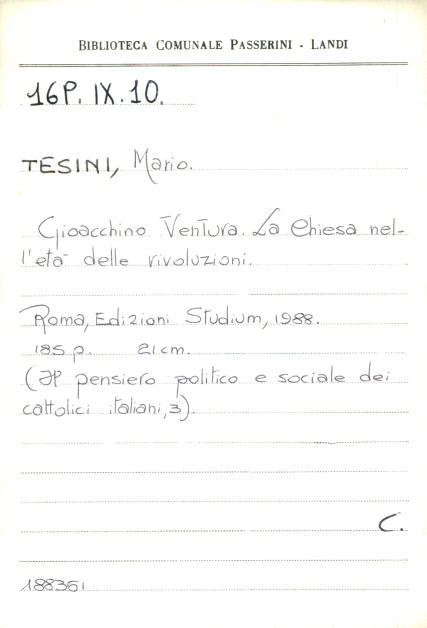 BIBLIOTECA COMUNALE PASSERINI - LANDI
16P. IX. 10.
TESINI, Mario.
Gioacchino Ventura. La Chiesa nel-
l'età delle rivoluzioni.
Roma, Edizioni Studium, 1988.
185 p. 21cm.
(Il pensiero politico e sociale dei
cattolici italiani, 3).
C.
188361